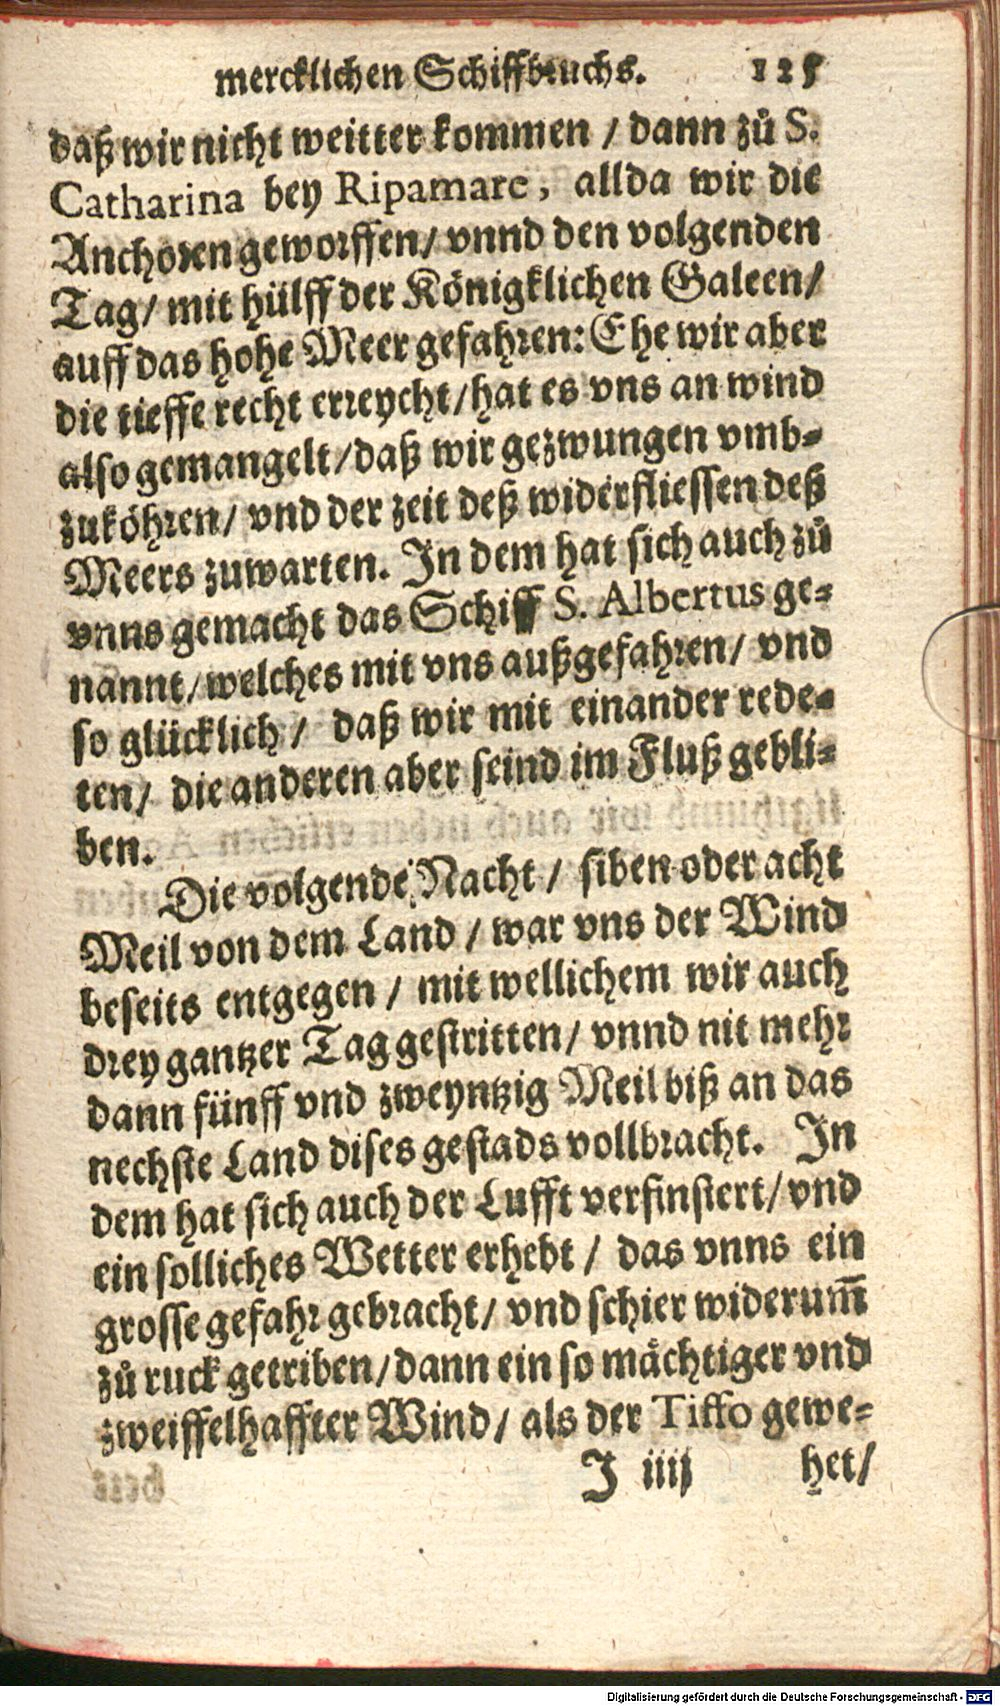 mercklichen Schiffbruchs. 125
daß wir nicht weitter kommen / dann zů S.
Catharina bey Ripamare, allda wir die
Anchoren geworffen/ vnnd den volgenden
Tag/ mit hülff der Königklichen Galeen/
auff das hohe Meer gefahren: Ehe wir aber
die tieffe recht erreycht/hat es vns an wind
also gemangelt/daß wir gezwungen vmb-
zuköhren/ vnd der zeit deß widerfliessen deß
Meers zuwarten. In dem hat sich auch zů
vnns gemacht das Schiff S. Albertus ge-
nannt/welches mit vns außgefahren/ vnd
so glücklich / daß wir mit einander rede-
ten/ die anderen aber seind im Fluß gebli-
ben.
Die volgende Nacht / siben oder acht
Meil von dem Land / war vns der Wind
beseits entgegen / mit wellichem wir auch
drey gantzer Tag gestritten/ vnnd nit mehr
dann fünff vnd zweyntzig Meil biß an das
nechste Land dises gestads vollbracht. In
dem hat sich auch der Lufft verfinstert/ vnd
ein solliches Wetter erhebt / das vnns ein
grosse gefahr gebracht/ vnd schier widerum̄
zů ruck getriben/dann ein so mächtiger vnd
zweiffelhaffter Wind/ als der Tiffo gewe-
J iiij het/
Digitalisierung gefördert durch die Deutsche Forschungsgemeinschaft - DFG